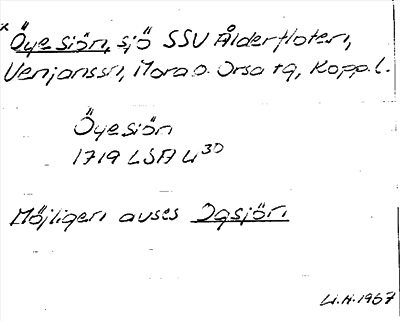 x Öyesjön, sjö SSV Ålderfloten,
Venjanssn, Mora o. Orsa tg, Kopp. l.
Öyesiön
1719 LSA U 30
Möjligen avses Ogsjön
1967